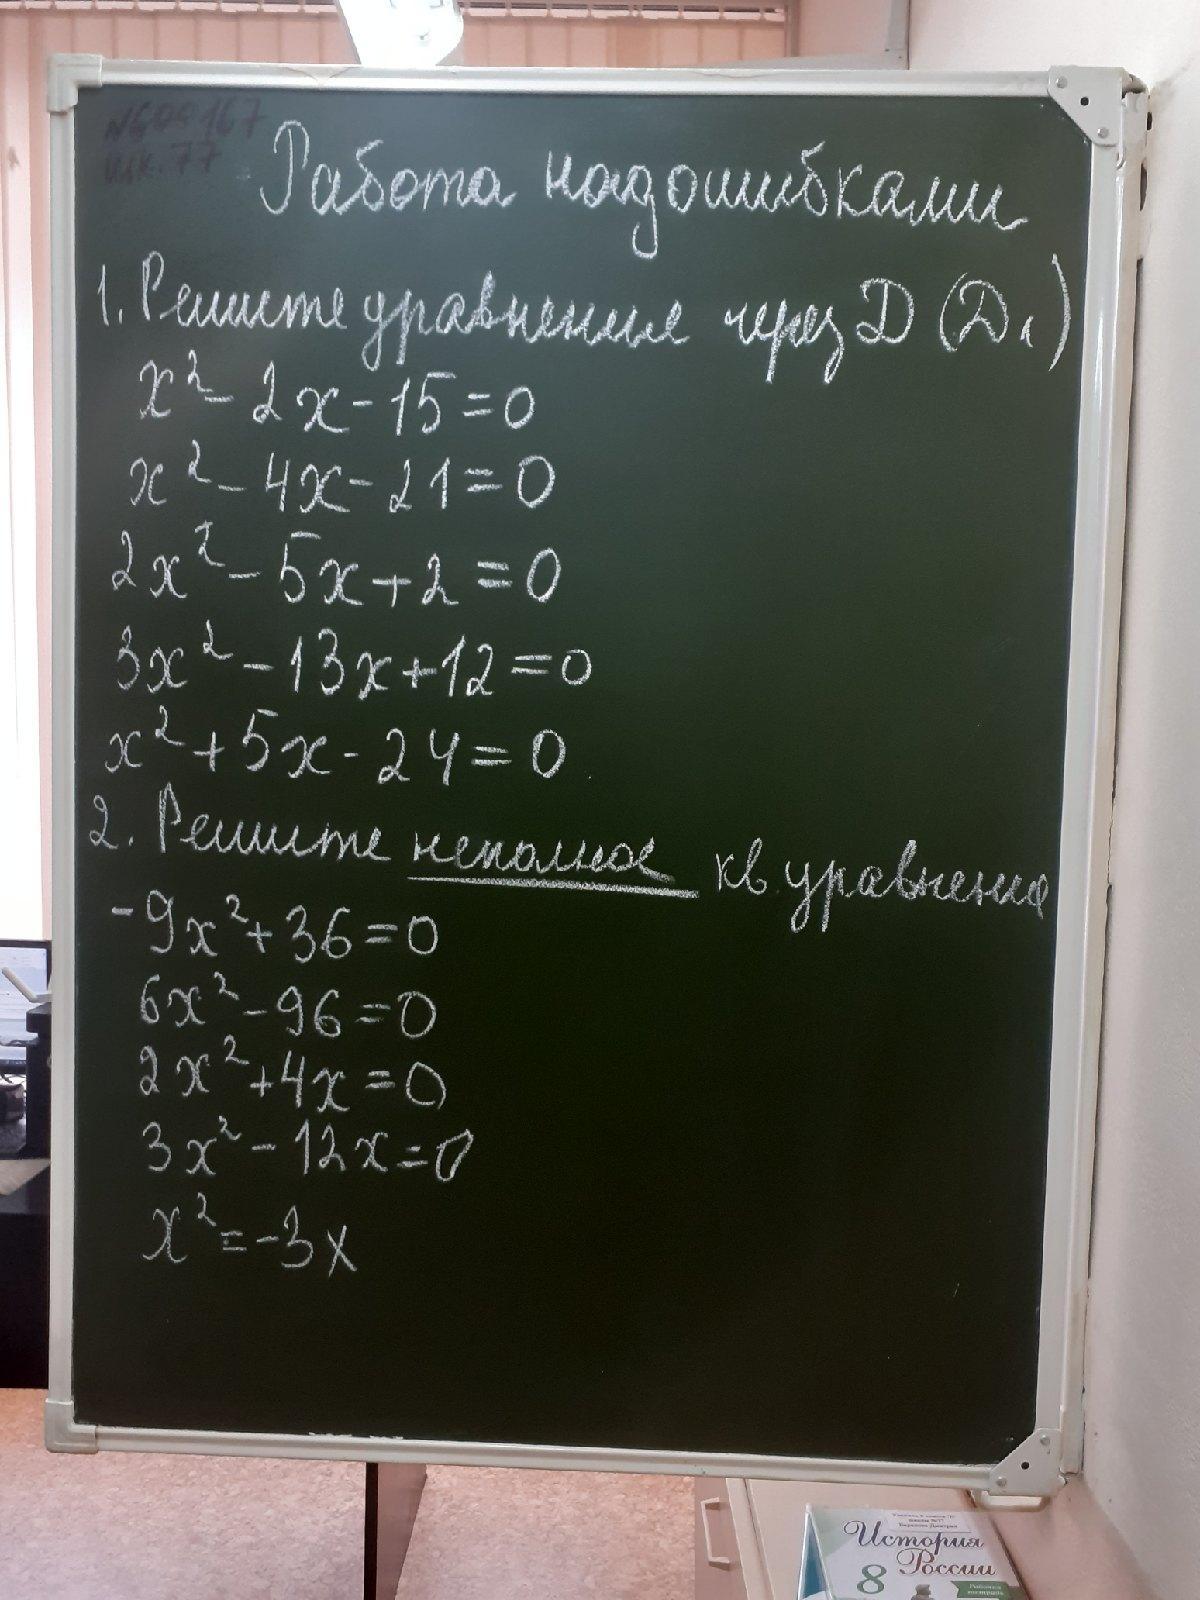 N600167
шк. 77
Работа над ошибками
1. Решите уравнение через D (D₁)
x² - 2x - 15 = 0
x² - 4x - 21 = 0
2x² - 5x + 2 = 0
3x² - 13x + 12 = 0
x² + 5x - 24 = 0
2. Решите неполное кв. уравнение
-9x² + 36 = 0
6x² - 96 = 0
2x² + 4x = 0
3x² - 12x = 0
x² = -3x
История
России
8